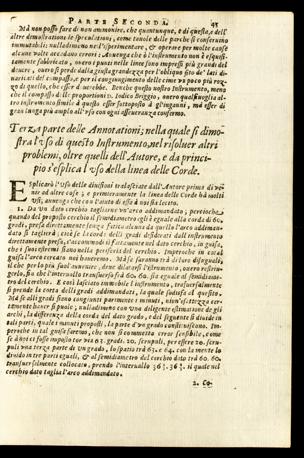 PARTE SECONDA. 45
Mà non posso far di non ammonire, che quantunque, e di questa, e dell'
altre demostrationi le speculationi, come tutole delle parche si conseruino
immutabili: nulladimeno nel l'isperimentare, & operare per molte cause
alcune volte accadono errori. Auuenga che ò l'instrumento non è isquisi-
tamente fabbricato, ouero i punti nelle linee sono impressi più grandi del
douere, ouero si perde dalla giusta grandezza per l'obliquo sito de' lati di-
uaricati del compasso, e per il congiungimento delle cime vn poco più roz-
zo di quello, che esser douerebbe. Benche questo nostro Instrumento, meno
che il compasso delle proportioni, ouero qualsiuoglia al-
tro instrumento simile à questo esser sottoposto à gl'inganni, mà esser di
gran lunga più ampio all'vso con ogni asseueranza confermo.
Terza parte delle Annotationi; nella quale si dimo-
stra l'vso di questo Instrumento, nel risoluer altri
problemi, oltre quelli dell'Autore, e da princi-
pio s'esplica l'vso della linea delle Corde.
Esplicarò l'Vso delle diuisioni tralasciate dall'Autore prima di ve-
nire ad altre cose; e primieramente la linea delle Corde hà molti
vsi, auuenga che con l'aiuto di essa à noi sia lecito.
1. Da vn dato cerchio tagliarne vn'arco addimandato; percioche
quando del proposto cerchio il semidiametro egli è eguale alla corda di 60.
gradi, presa direttamente senza fatica alcuna da quello l'arco addiman-
dato si taglierà; cioè se le corde delli gradi desiderati dall'instrumento
direttamente prese, s'accommodi il fattamente nel dato cerchio, in guisa,
che i suoi estremi siano nella periferia del cerchio. Imperoche in cotal
guisa l'arco cercato noi haueremo. Mà se saranno trà di loro disuguali,
il che per lo più suol auuenire, deue distrarsi l'instrumento, ouero restrin-
gersi, fin che l'interuallo transuersale frà 60. 60. sia eguale al semidiame-
tro del cerchio. E così lasciato immobile l'instrumento, transuersalmente
si prende la corda delli gradi addimandati, la quale sodisfà al quesito.
Mà se alli gradi sono congiunti parimente i minuti, ciò
si puole; nulladimeno con vna diligente estimatione de gli
archi, la differenza della corda del dato grado, e del seguente si diuide in
pati parti, quale i minuti proposti, la parte d'vn grado
imperche in tal guisa faremo, che non si commetta error sensibile, come
se à noi ci fusse imposto tor via 63. gradi. 20. scrupoli, per essere 20. scru-
puli vna terza parte di vn grado, lo spatio trà 63. e 64. con la mente lo
diuido in tre parti eguali, & al semidiametro del cerchio dato trà 60. 60.
transuersalmente collocato, prendo l'interuallo 36 il quale nel
cerchio dato taglia l'arco addimandato.
2. Co-